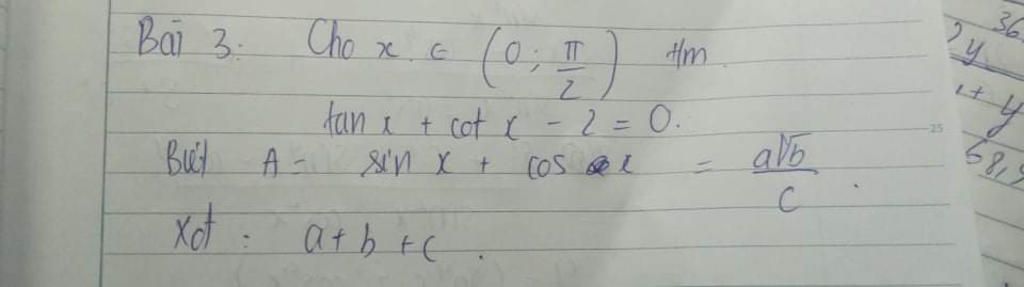 Bài 3: Cho x ∈ (0; π/2) t/m
tan x + cot x - 2 = 0.
Biết A = sin x + cos x = a√b/c.
Xét: a + b + c.
36
2y
1+y
68,9
25